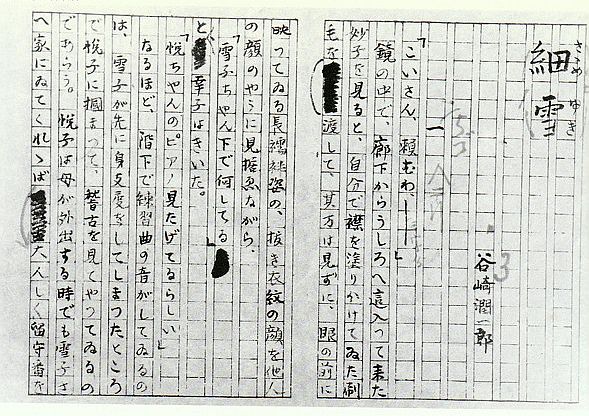 細雪
ささめゆき
谷崎潤一郎
一
「こいさん、頼むわ。――」
鏡の中で、廊下からうしろへ這入つて来た
妙子を見ると、自分で襟を塗りかけてゐた刷
毛を渡して、其方は見ずに、眼の前に
映つてゐる長襦袢姿の、抜き衣紋の顔を他人
の顔のやうに見据ゑながら、
「雪子ちやん下で何してる」
と、幸子はきいた。
「悦ちやんのピアノ見たげてるらしい」
なるほど、階下で練習曲の音がしてゐるの
は、雪子が先に身支度をしてしまつたところ
で悦子に掴まつて、稽古を見てやつてゐるの
であらう。悦子は母が外出する時でも雪子さ
へ家にゐてくれゝば大人しく留守番を